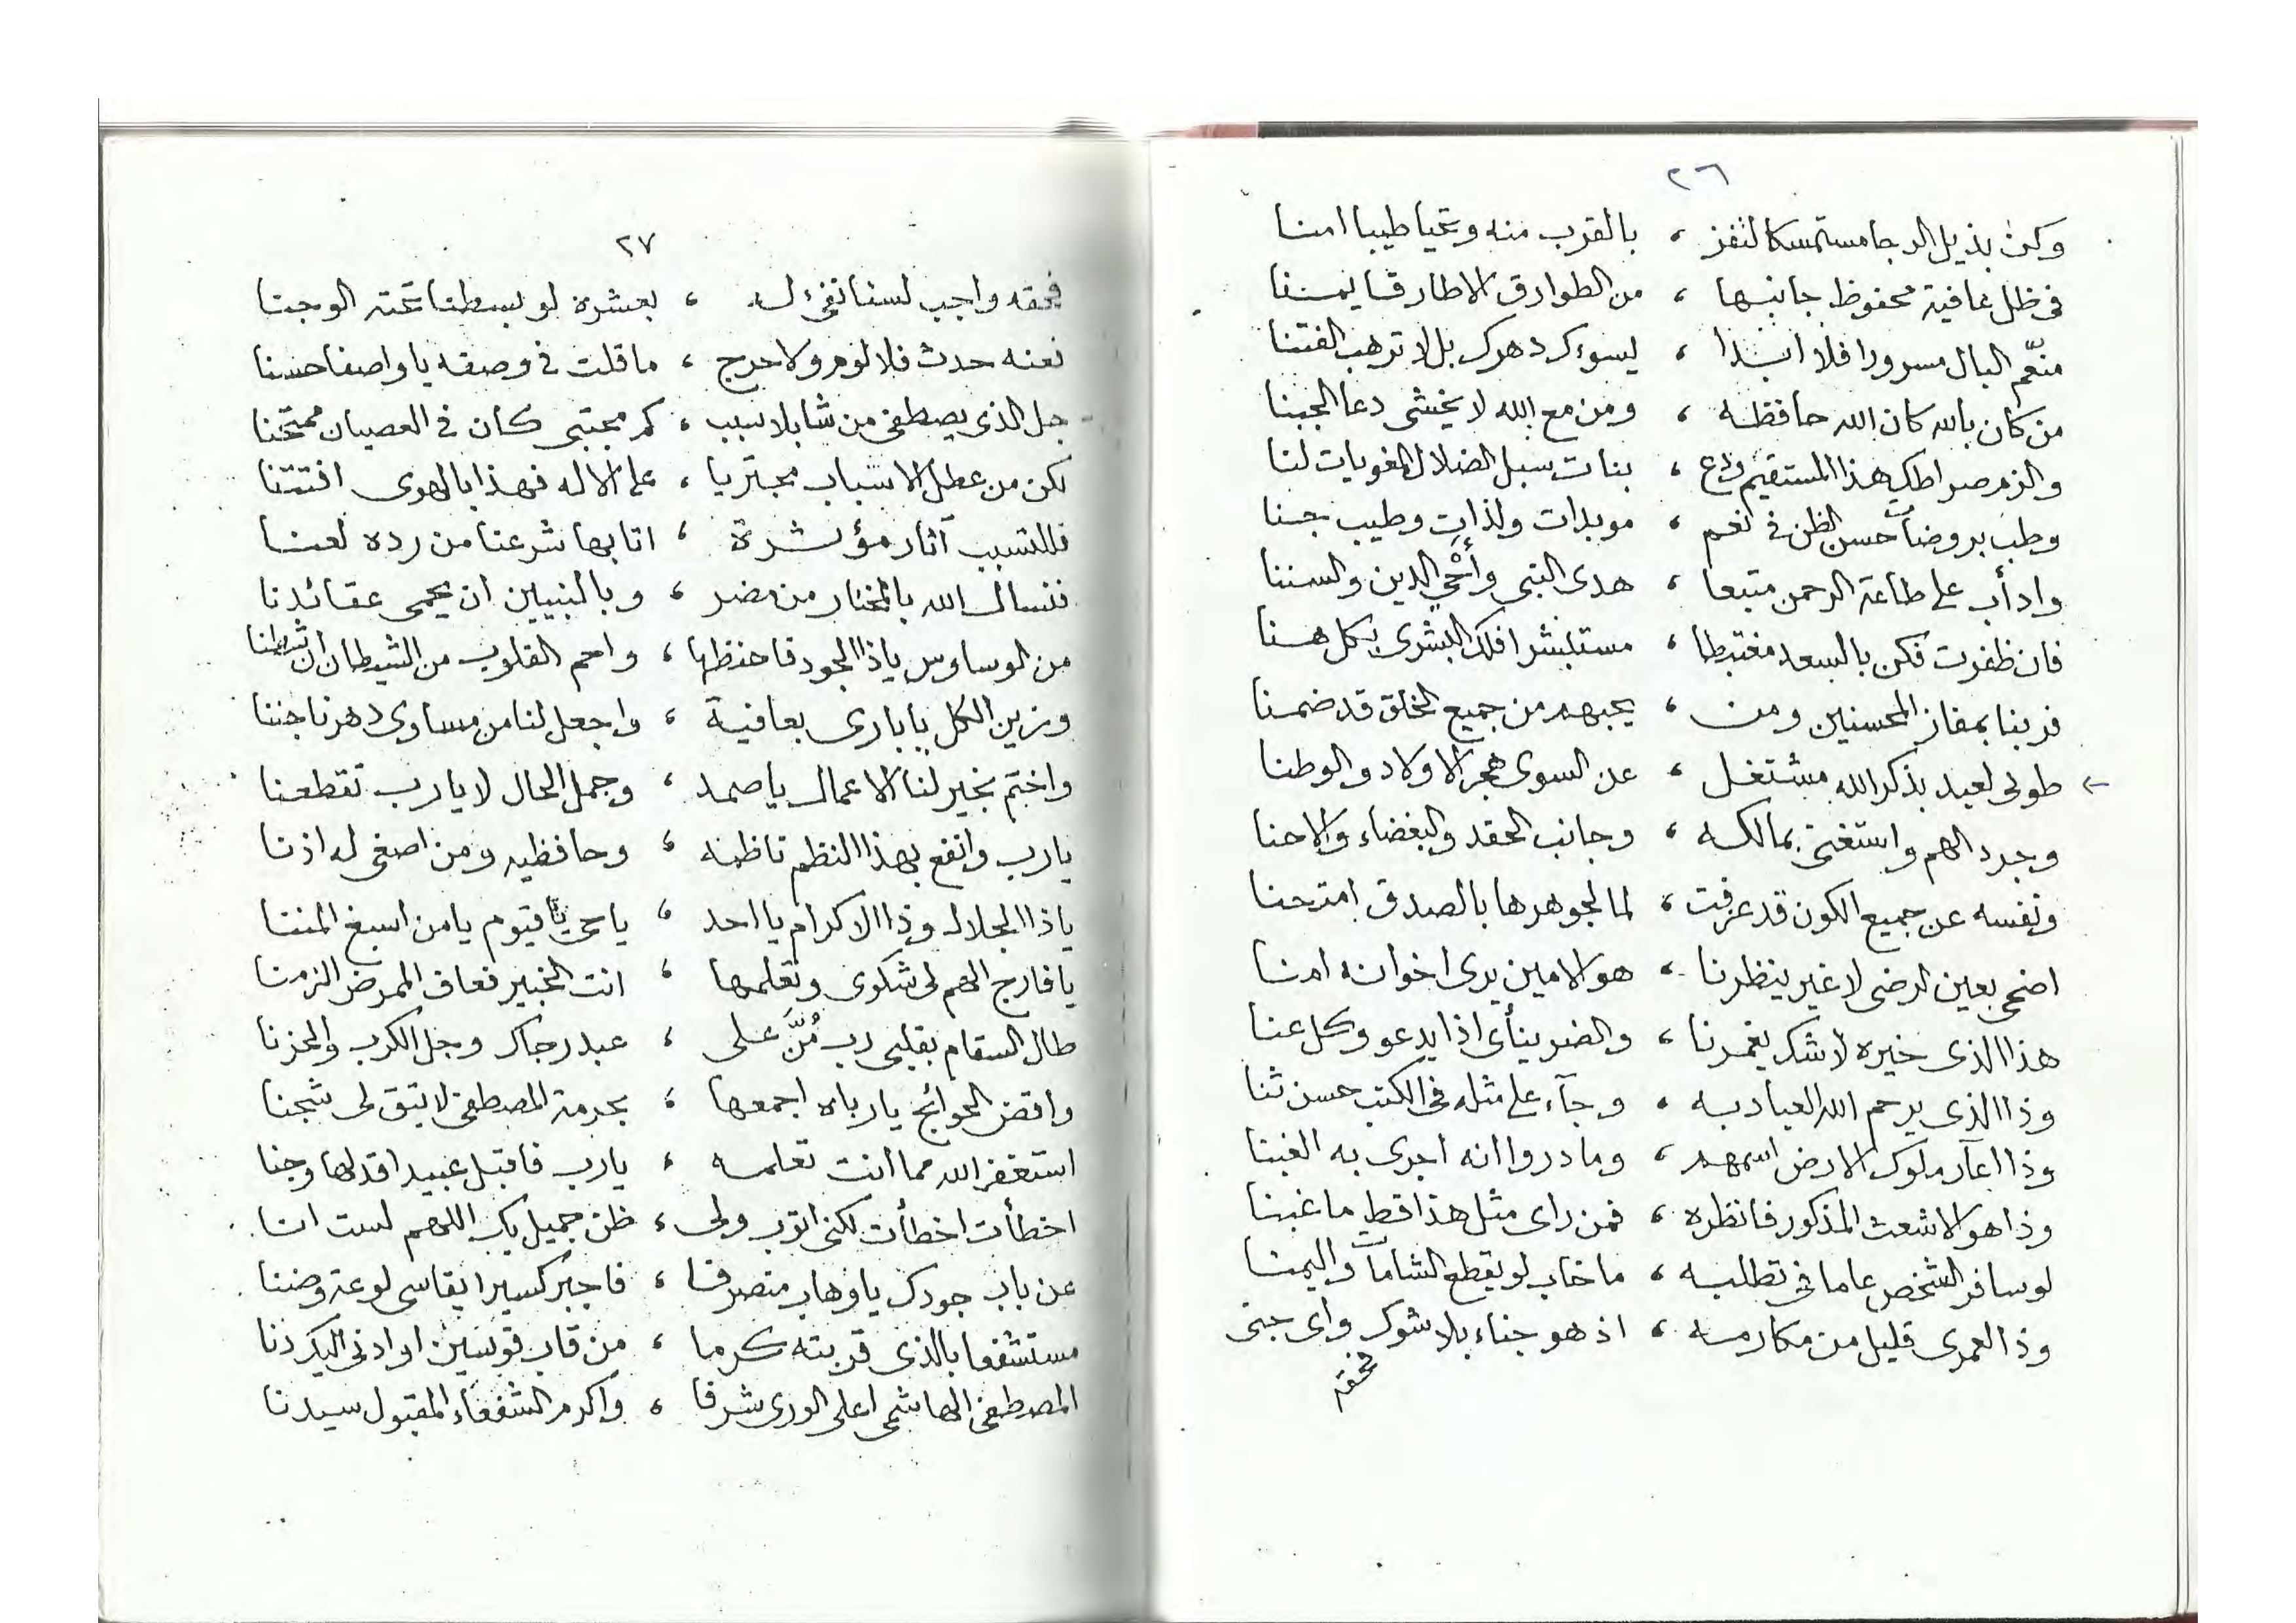 ٢٦
وكن بذيل الرجا مستمسكا لتفز ، بالقرب منه وتحيا طيبا امنا
فى ظل عافية محفوظ جانبها ، من الطوارق الا طارقا يمنا
منعّم البال مسرورا فلا ابدا ، يسوءك دهرك بل لا ترهب الفتنا
من كان بالله كان الله حافظه ، ومن مع الله لا يخشى دعا الجبنا
والزم صراطك هذا المستقيم ودع ، بنات سبل الضلال المغويات لنا
وطب بروضات حسن الظن فى نعم ، موبدات ولذات وطيب جنا
وادأب على طاعة الرحمن متبعا ، هدى النبى وأحي الدين والسننا
فان ظفرت فكن بالسعد مغتبطا ، مستبشرا فلك البشرى بكل هنا
فز بنا بمفاز المحسنين ومن ، يحبهم من جميع الخلق قد ضمنا
طوبى لعبد بذكر الله مشتغل ، عن السوى هجر الاولاد والوطنا
وجرد الهم واستغنى بمالكه ، وجانب الحقد والبغضاء والاحنا
ونفسه عن جميع الكون قد عزفت ، لما لجوهرها بالصدق امتحنا
اضحى بعين الرضى لا غير ينظرنا ، هو الامين يرى اخوانه امنا
هذا الذى خيره لا شك يغمرنا ، والضر ينأى اذا يدعو وكل عنا
وذا الذى يرحم الله العباد به ، وجآء على مثله فى الكتب حسن ثنا
وذا اعآر ملوك الارض اسمهم ، وما دروا انه اجرى به الغبنا
وذا هو الاشعث المذكور فانظره ، فمن راى مثل هذا قط ما غبنا
لو سافر الشخص عاما فى تطلبه ، ما خاب لو يقطع الشامات واليمنا
وذا لعمرى قليل من مكارمه ، اذ هو جناء بلا شوك واى جنى
فحقه
٢٧
فحقه واجب لسنا نفى له ، بعشره لو بسطنا تحته الوجنا
فعنه حدث فلا لوم ولا حرج ، ما قلت فى وصفه يا واصفا حسنا
جل الذى يصطفى من شا بلا سبب ، كم مجتبى كان فى العصيان ممتحنا
لكن من عطل الاسباب مجتريا ، على الاله فهذا بالهوى افتتنا
فللتسبب آثار مؤثرة ، اتا بها شرعنا من رده لعنا
فنسال الله بالمختار من مضر ، وبالنبيين ان يحمى عقائدنا
من الوساوس ياذا الجود فاحفظها ، واحم القلوب من الشيطان ان شطنا
وزين الكل يا بارى بعافية ، واجعل لنا من مساوى دهرنا جننا
واختم بخير لنا الاعمال يا صمد ، وجمل الحال لا يا رب تقطعنا
يارب وانفع بهذا النظم ناظمه ، وحافظيه ومن اصغى له اذنا
ياذا الجلال وذا الاكرام يا احد ، ياحى يا قيوم يا من اسبغ المننا
يا فارج الهم لى شكوى وتعلمها ، انت الخبير فعاف الممرض الزمنا
طال السقام بقلبى رب مُنَّ على ، عبد رجاك وجل الكرب والحزنا
واقض الحوائج يارباه اجمعها ، بحرمة المصطفى لا تبق لى شجنا
استغفر الله مما انت تعلمه ، يارب فاقبل عبيدا قد لها وجنا
اخطأت اخطأت لكنى اتوب ولى ، ظن جميل بك اللهم لست انا
عن باب جودك يا وهاب منصرفا ، فاجبر كسيرا يقاسى لوعة وضنا
مستشفعا بالذى قربته كرما ، من قاب قوسين او ادنى اليك دنا
المصطفى الهاشمى اعلى الورى شرفا ، واكرم الشفعاء المقبول سيدنا